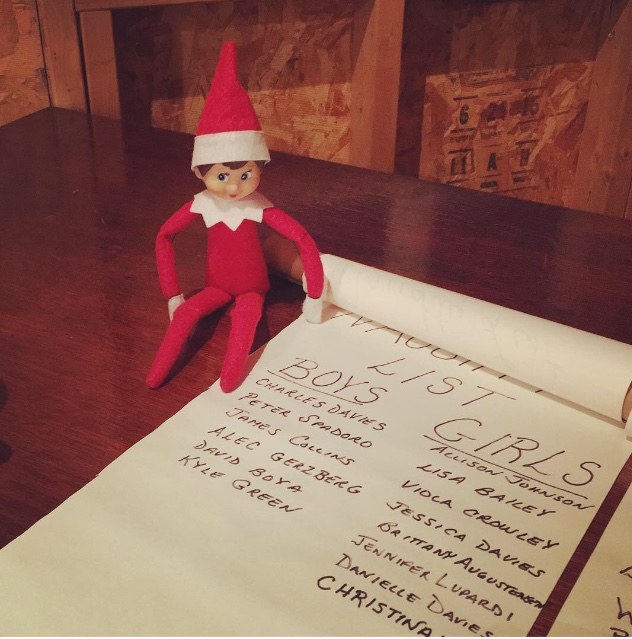 NAUGHTY
LIST
BOYS
CHARLES DAVIES
PETER SPADORO
JAMES COLLINS
ALEC GERZBERG
DAVID BOYA
KYLE GREEN
GIRLS
ALLISON JOHNSON
LISA BAILEY
VIOLA CROWLEY
JESSICA DAVIES
BRITTANY AUGUSTENSEN
JENNIFER LUPARDI
DANIELLE DAVIES
CHRISTINA